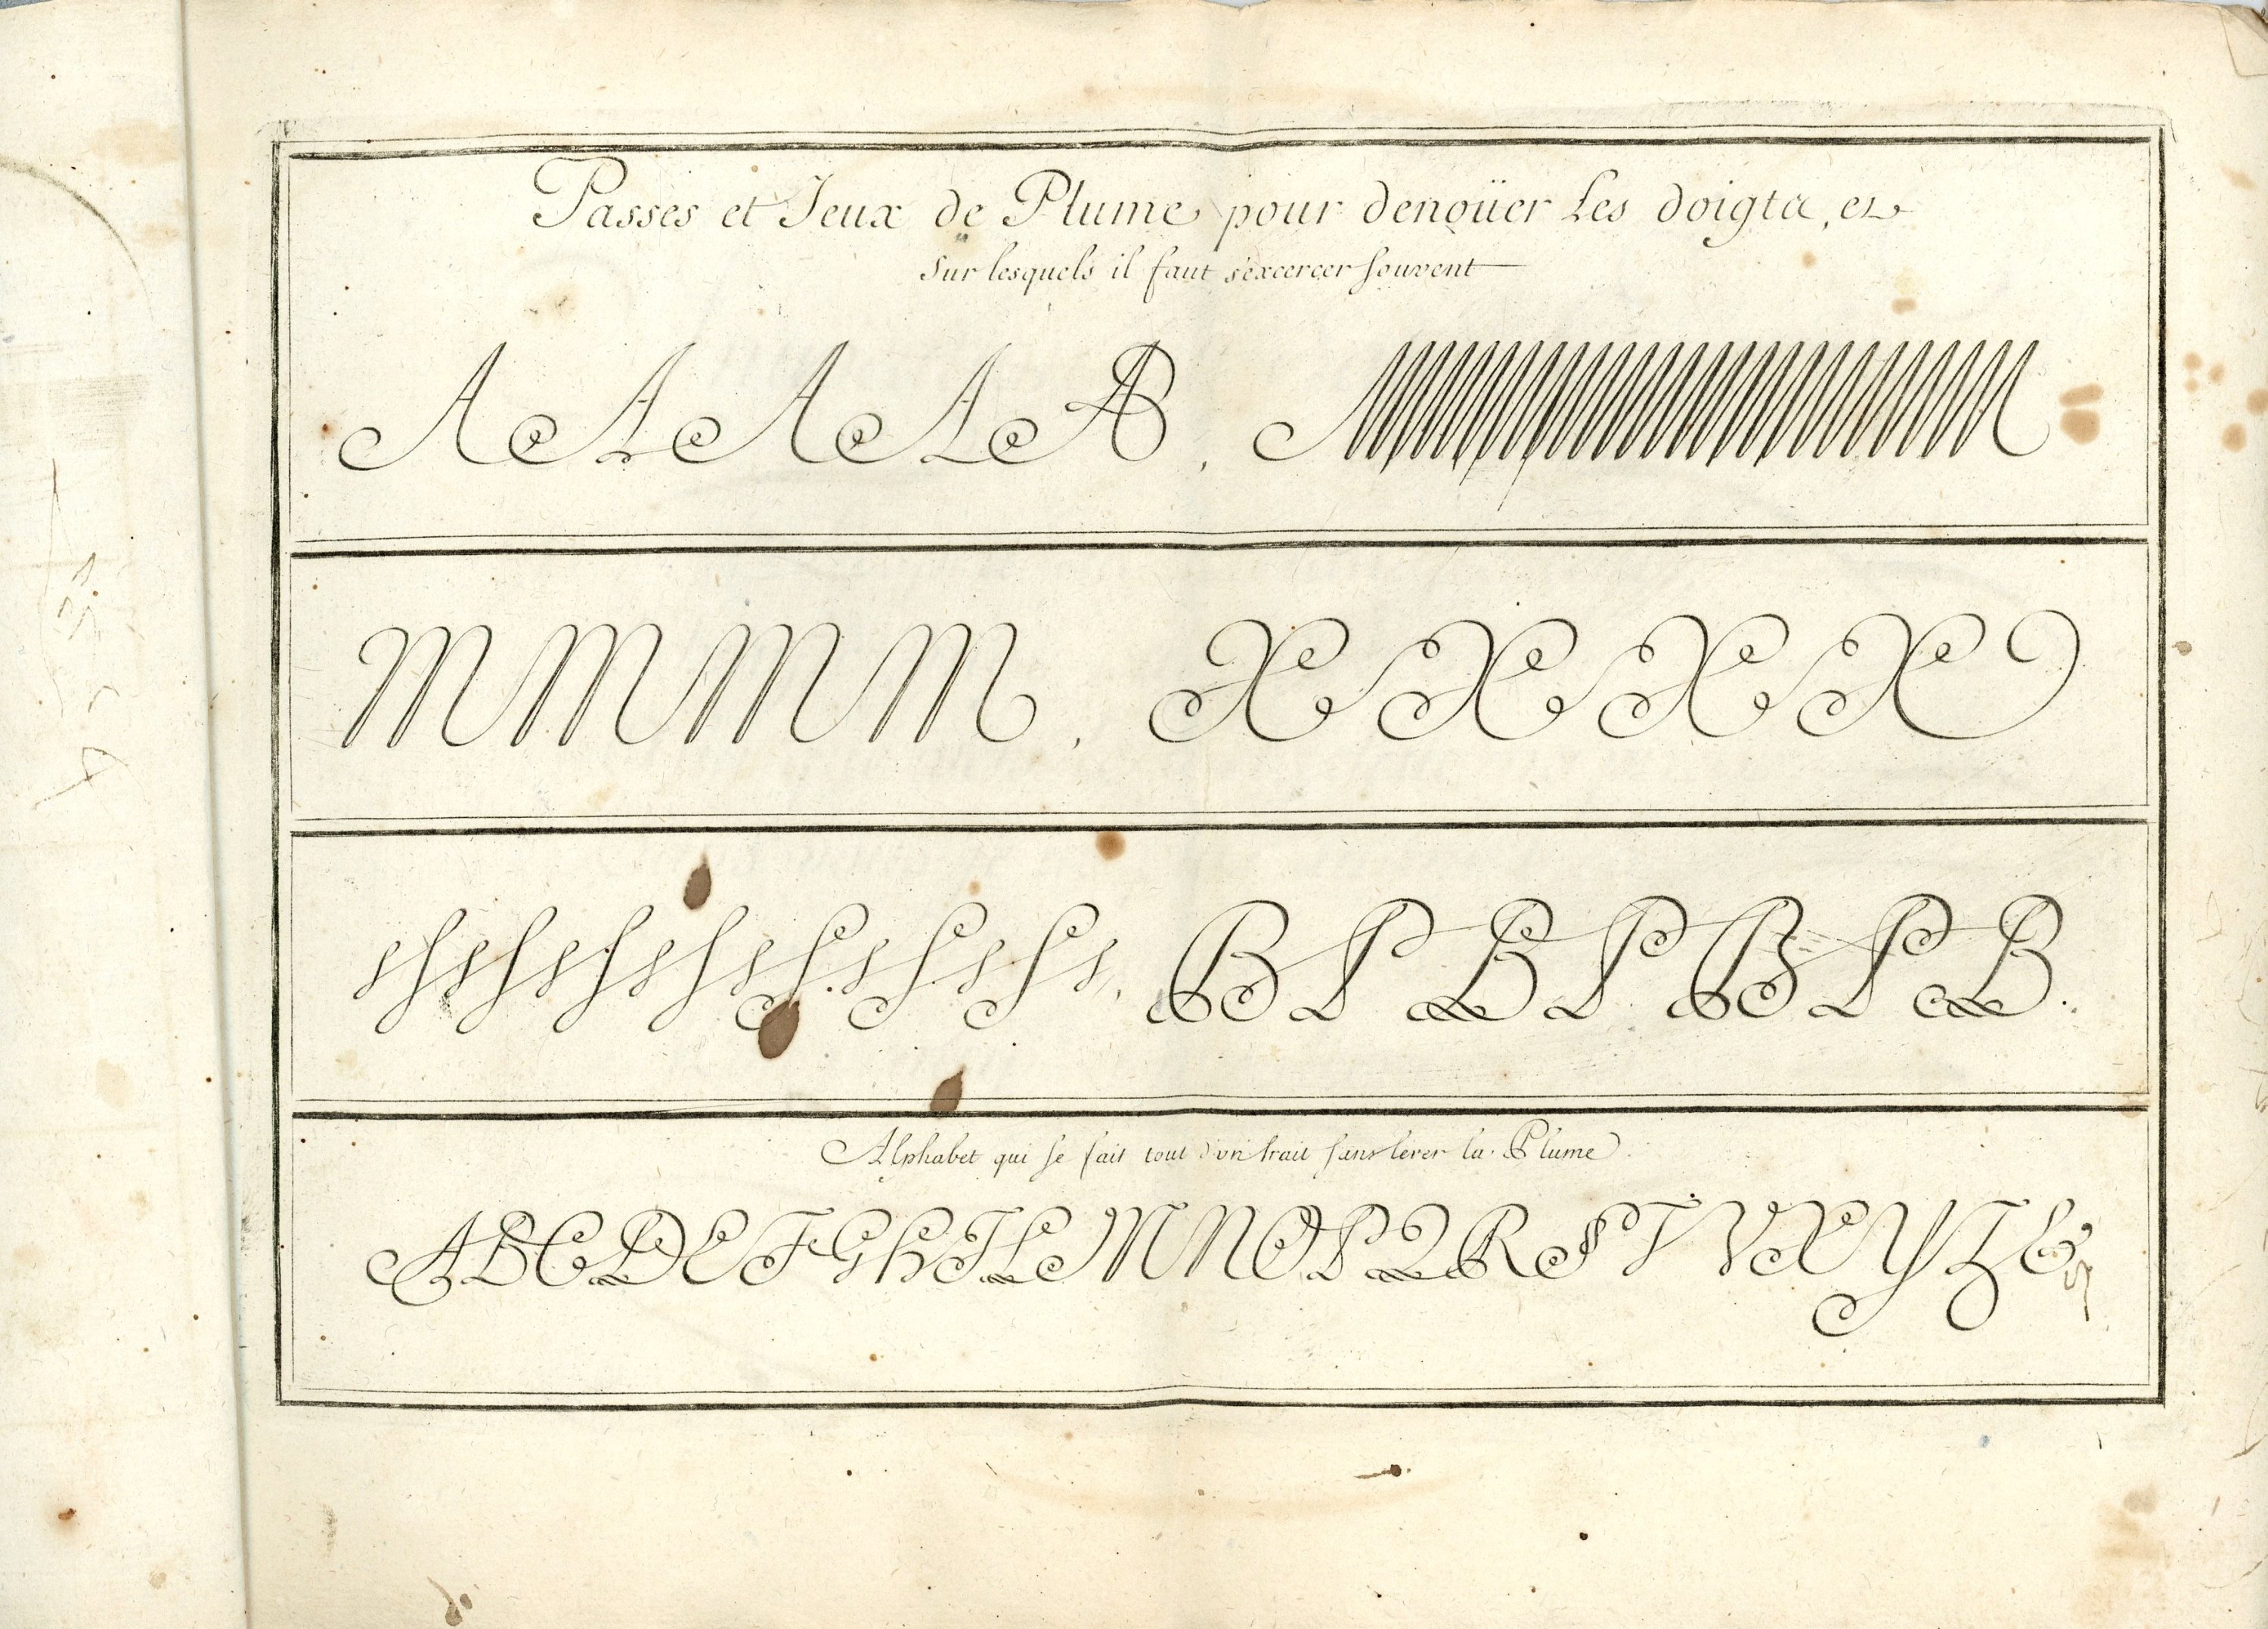 Passes et Jeux de Plume pour denoüer Les doigts, et
sur lesquels il faut s'exercer souvent
A A A A AB,
M M M M, X X X X
sssssssssssssss, B P B P B P B.
Alphabet qui se fait tout d'un trait sans lever la Plume
A B C D E F G H I L M N O P Q R S T V X Y Z &